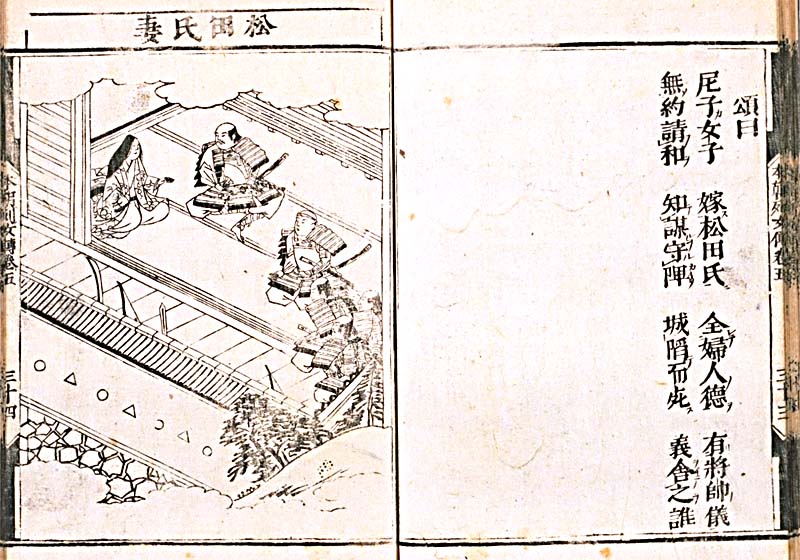 頌曰
尼子女子 嫁松田氏 全婦人德 有將帥儀
無約請和 知謀守陴 城陷而死 義舍之誰
本朝列女傳卷五
松田氏妻
本朝列女傳卷五 三十四